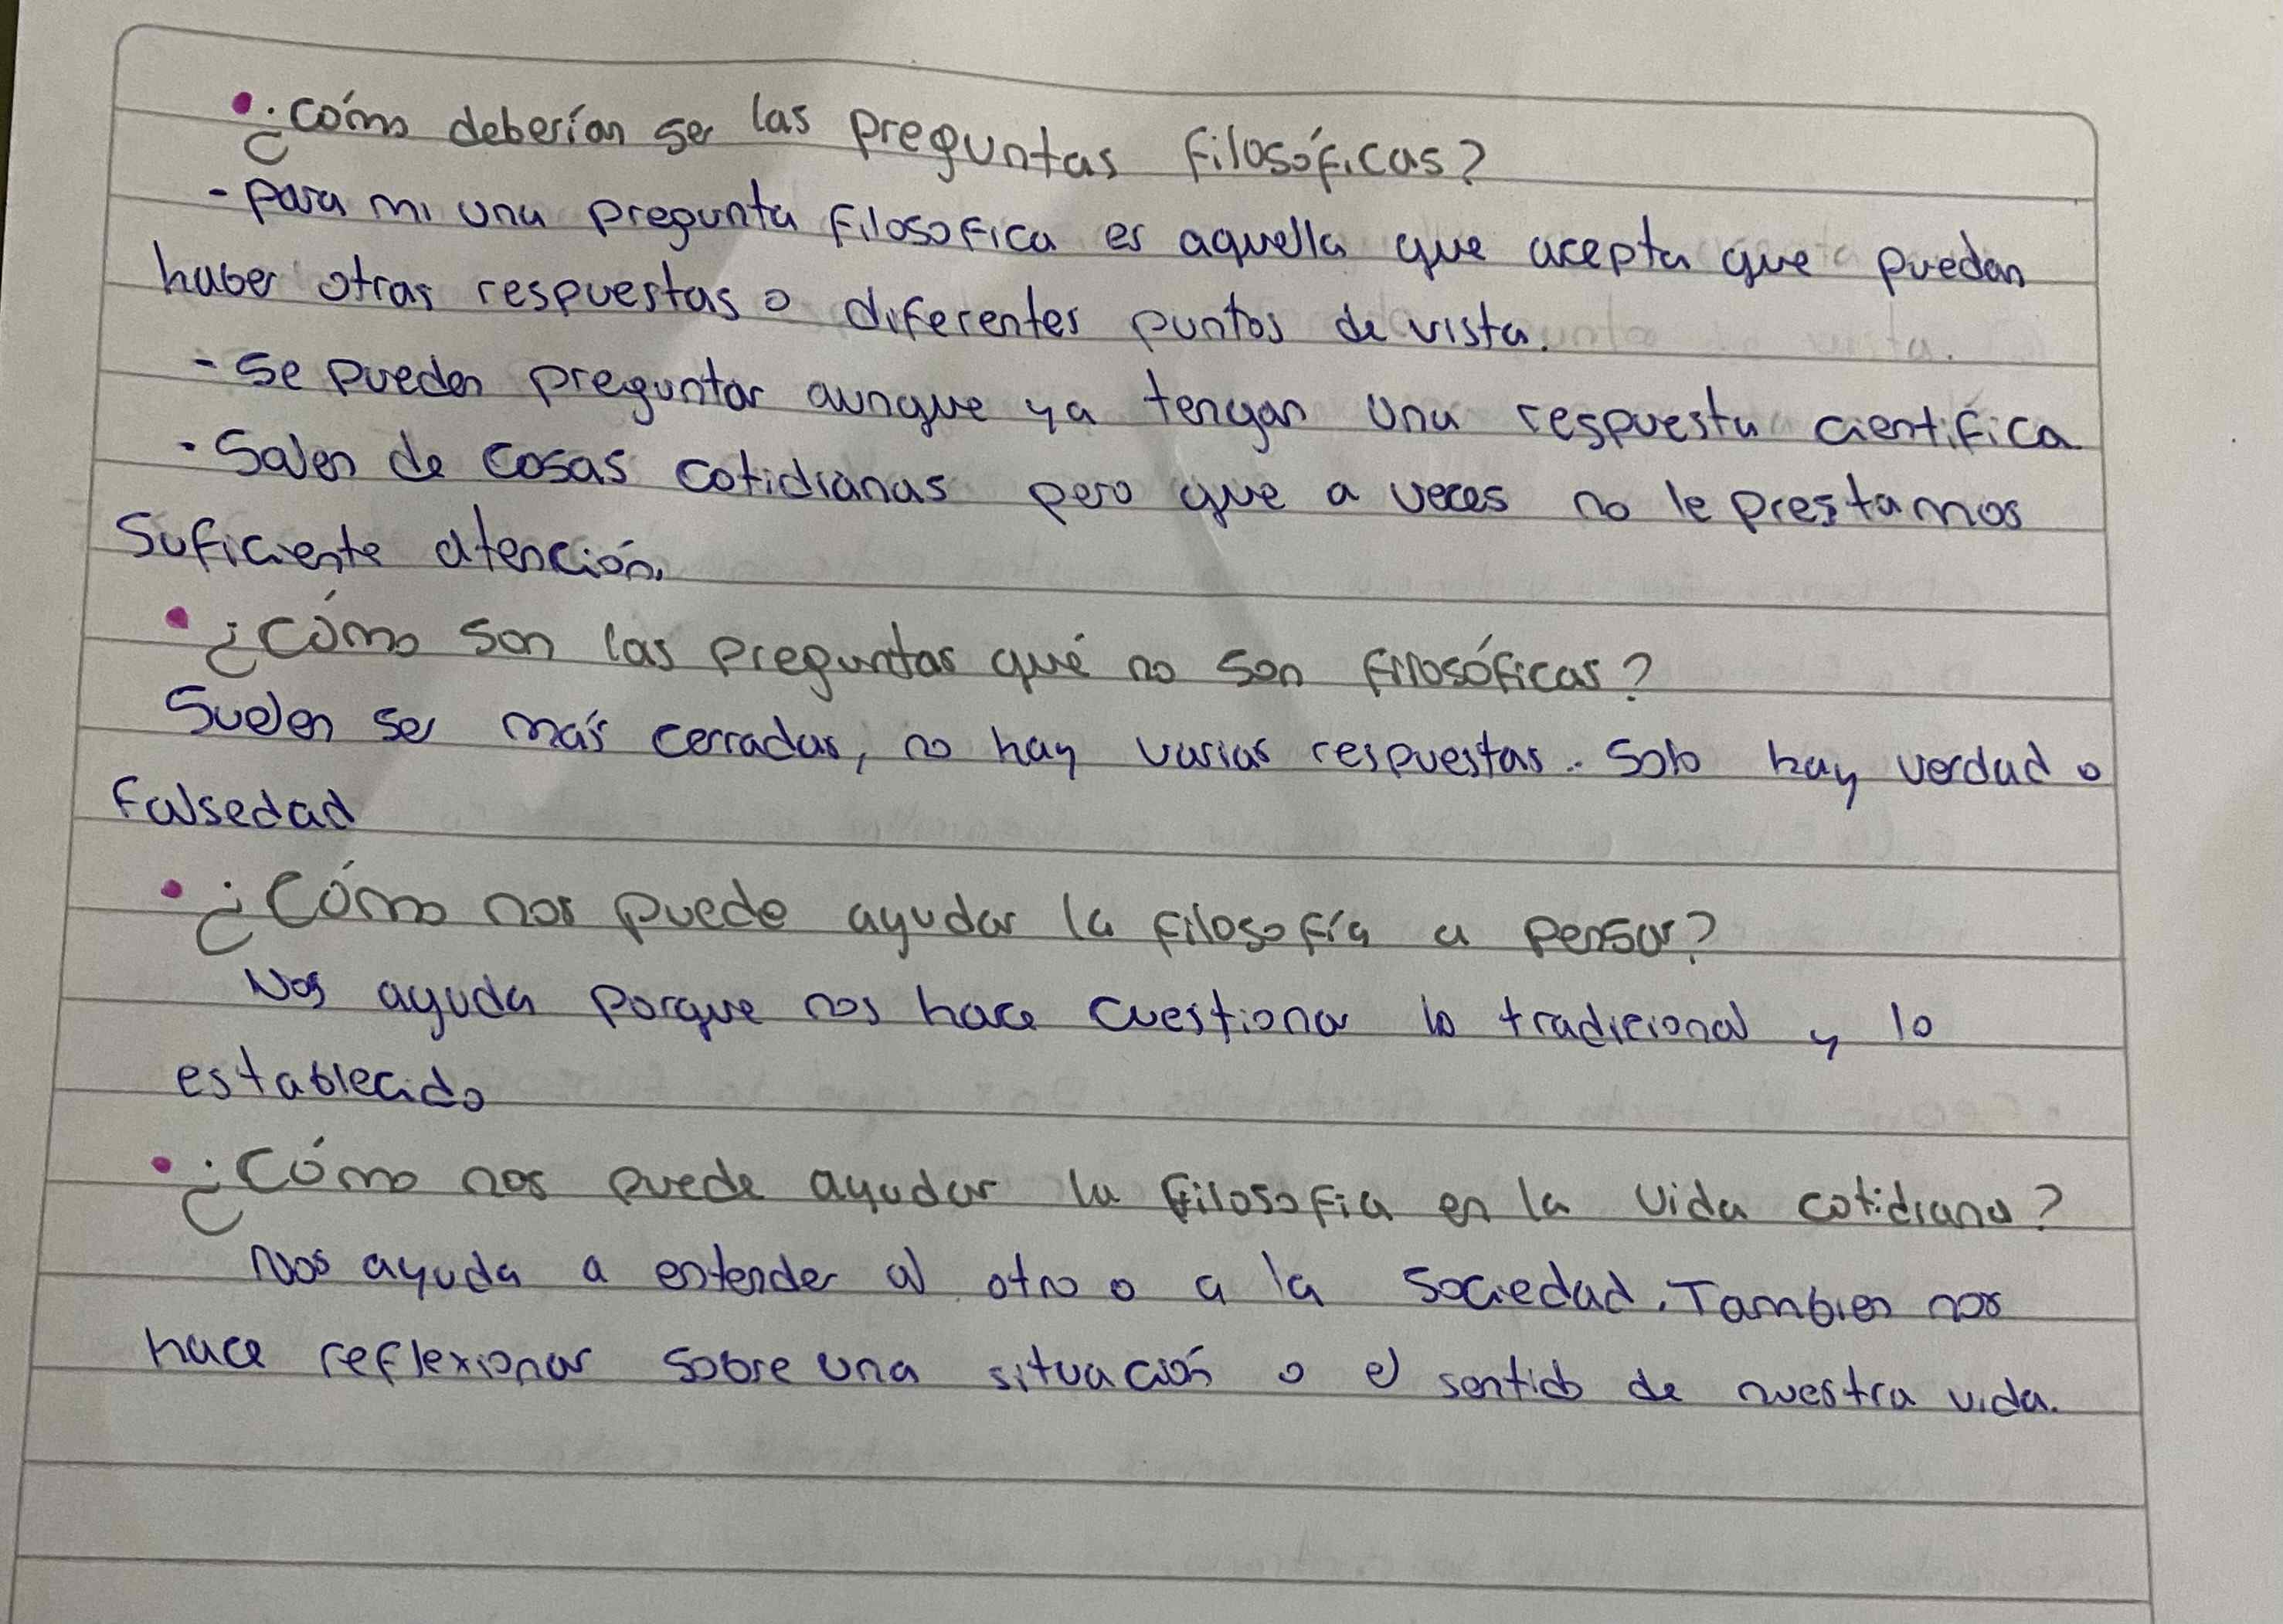 • ¿cómo deberían ser las preguntas filosóficas?
- para mi una pregunta filosofica es aquella que acepta que puedan
haber otras respuestas o diferentes puntos de vista.
- se pueden preguntar aunque ya tengan una respuesta cientifica
- Salen de cosas cotidianas pero que a veces no le prestamos
suficiente atención.
• ¿cómo son las preguntas qué no son filosóficas?
Suelen ser más cerradas, no hay varias respuestas. Solo hay verdad o
falsedad
• ¿Cómo nos puede ayudar la filosofía a pensar?
Nos ayuda porque nos hace cuestionar lo tradicional y lo
establecido
• ¿Cómo nos puede ayudar la filosofia en la vida cotidiana?
Nos ayuda a entender al otro o a la sociedad. Tambien nos
hace reflexionar sobre una situación o el sentido de nuestra vida.